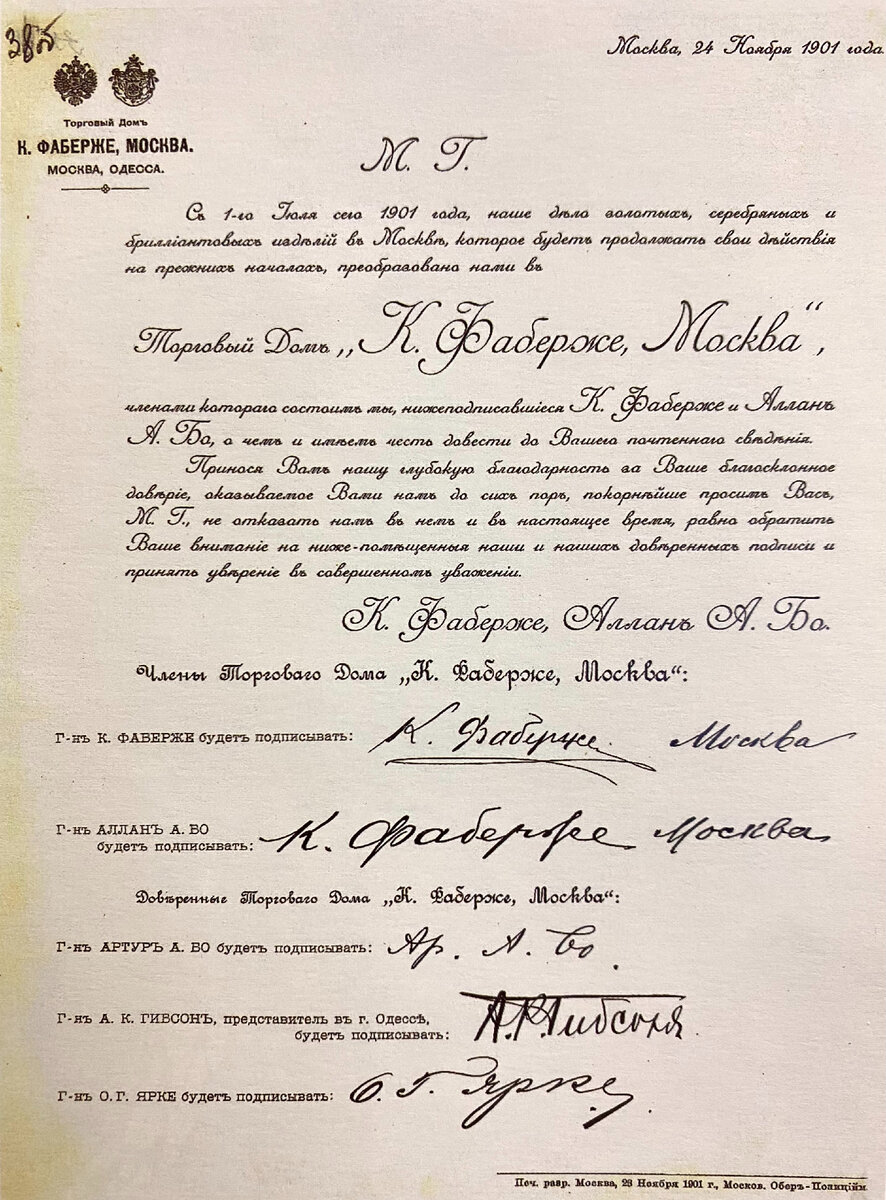 38
Москва, 24 Ноября 1901 года.
Торговый Домъ
К. ФАБЕРЖЕ, МОСКВА.
МОСКВА, ОДЕССА.
М. Г.
Съ 1-го Іюля сего 1901 года, наше дѣло золотыхъ, серебряныхъ и
брилліантовыхъ издѣлій въ Москвѣ, которое будетъ продолжать свои дѣйствія
на прежнихъ началахъ, преобразовано нами въ
Торговый Домъ „К. Фаберже, Москва“,
членами котораго состоимъ мы, нижеподписавшіеся К. Фаберже и Алланъ
А. Бо, о чемъ и имѣемъ честь довести до Вашего почтеннаго свѣдѣнія.
Принося Вамъ нашу глубокую благодарность за Ваше благосклонное
довѣріе, оказываемое Вами намъ до сихъ поръ, покорнѣйше просимъ Васъ,
М. Г., не отказать намъ въ немъ и въ настоящее время, равно обратить
Ваше вниманіе на ниже-помѣщенныя наши и нашихъ довѣренныхъ подписи и
принять увѣреніе въ совершенномъ уваженіи.
К. Фаберже, Алланъ А. Бо.
Члены Торговаго Дома „К. Фаберже, Москва“:
Г-нъ К. ФАБЕРЖЕ будетъ подписывать: К. Фаберже Москва
Г-нъ АЛЛАНЪ А. БО
будетъ подписывать: К. Фаберже Москва
Довѣренные Торговаго Дома „К. Фаберже, Москва“:
Г-нъ АРТУРЪ А. БО будетъ подписывать: Ар. А. Бо.
Г-нъ А. К. ГИБСОНЪ, представитель въ г. Одессѣ,
будетъ подписывать: А. К. Гибсонъ
Г-нъ О. Г. ЯРКЕ будетъ подписывать: О. Г. Ярке
Печ. разр. Москва, 28 Ноября 1901 г., Москов. Оберъ-Полиціймъ.